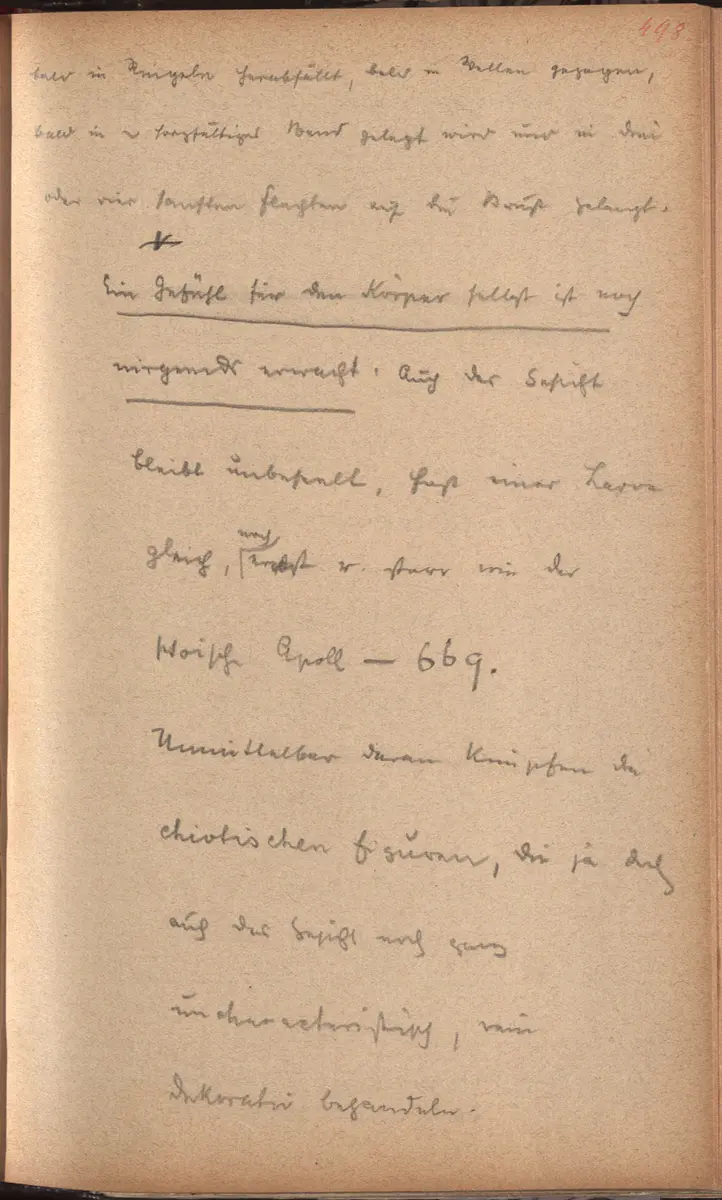 498
bald in Ringeln herabfällt, bald in Wellen gezogen,
bald in e sorgfältiges Band gelegt wird und in drei
oder vier sanften Flechten auf die Brust gelangt.
Ein Gefühl für den Körper selbst ist noch
nirgends erwacht. Auch das Gesicht
bleibt unbeseelt, fast einer Larve
gleich, noch ernst u. starr wie der
Apoll — 669.
Unmittelbar daran knüpfen die
chiotischen Figuren, die ja doch
auch das Gesicht noch ganz
uncharacteristisch, rein
dekorativ behandeln.